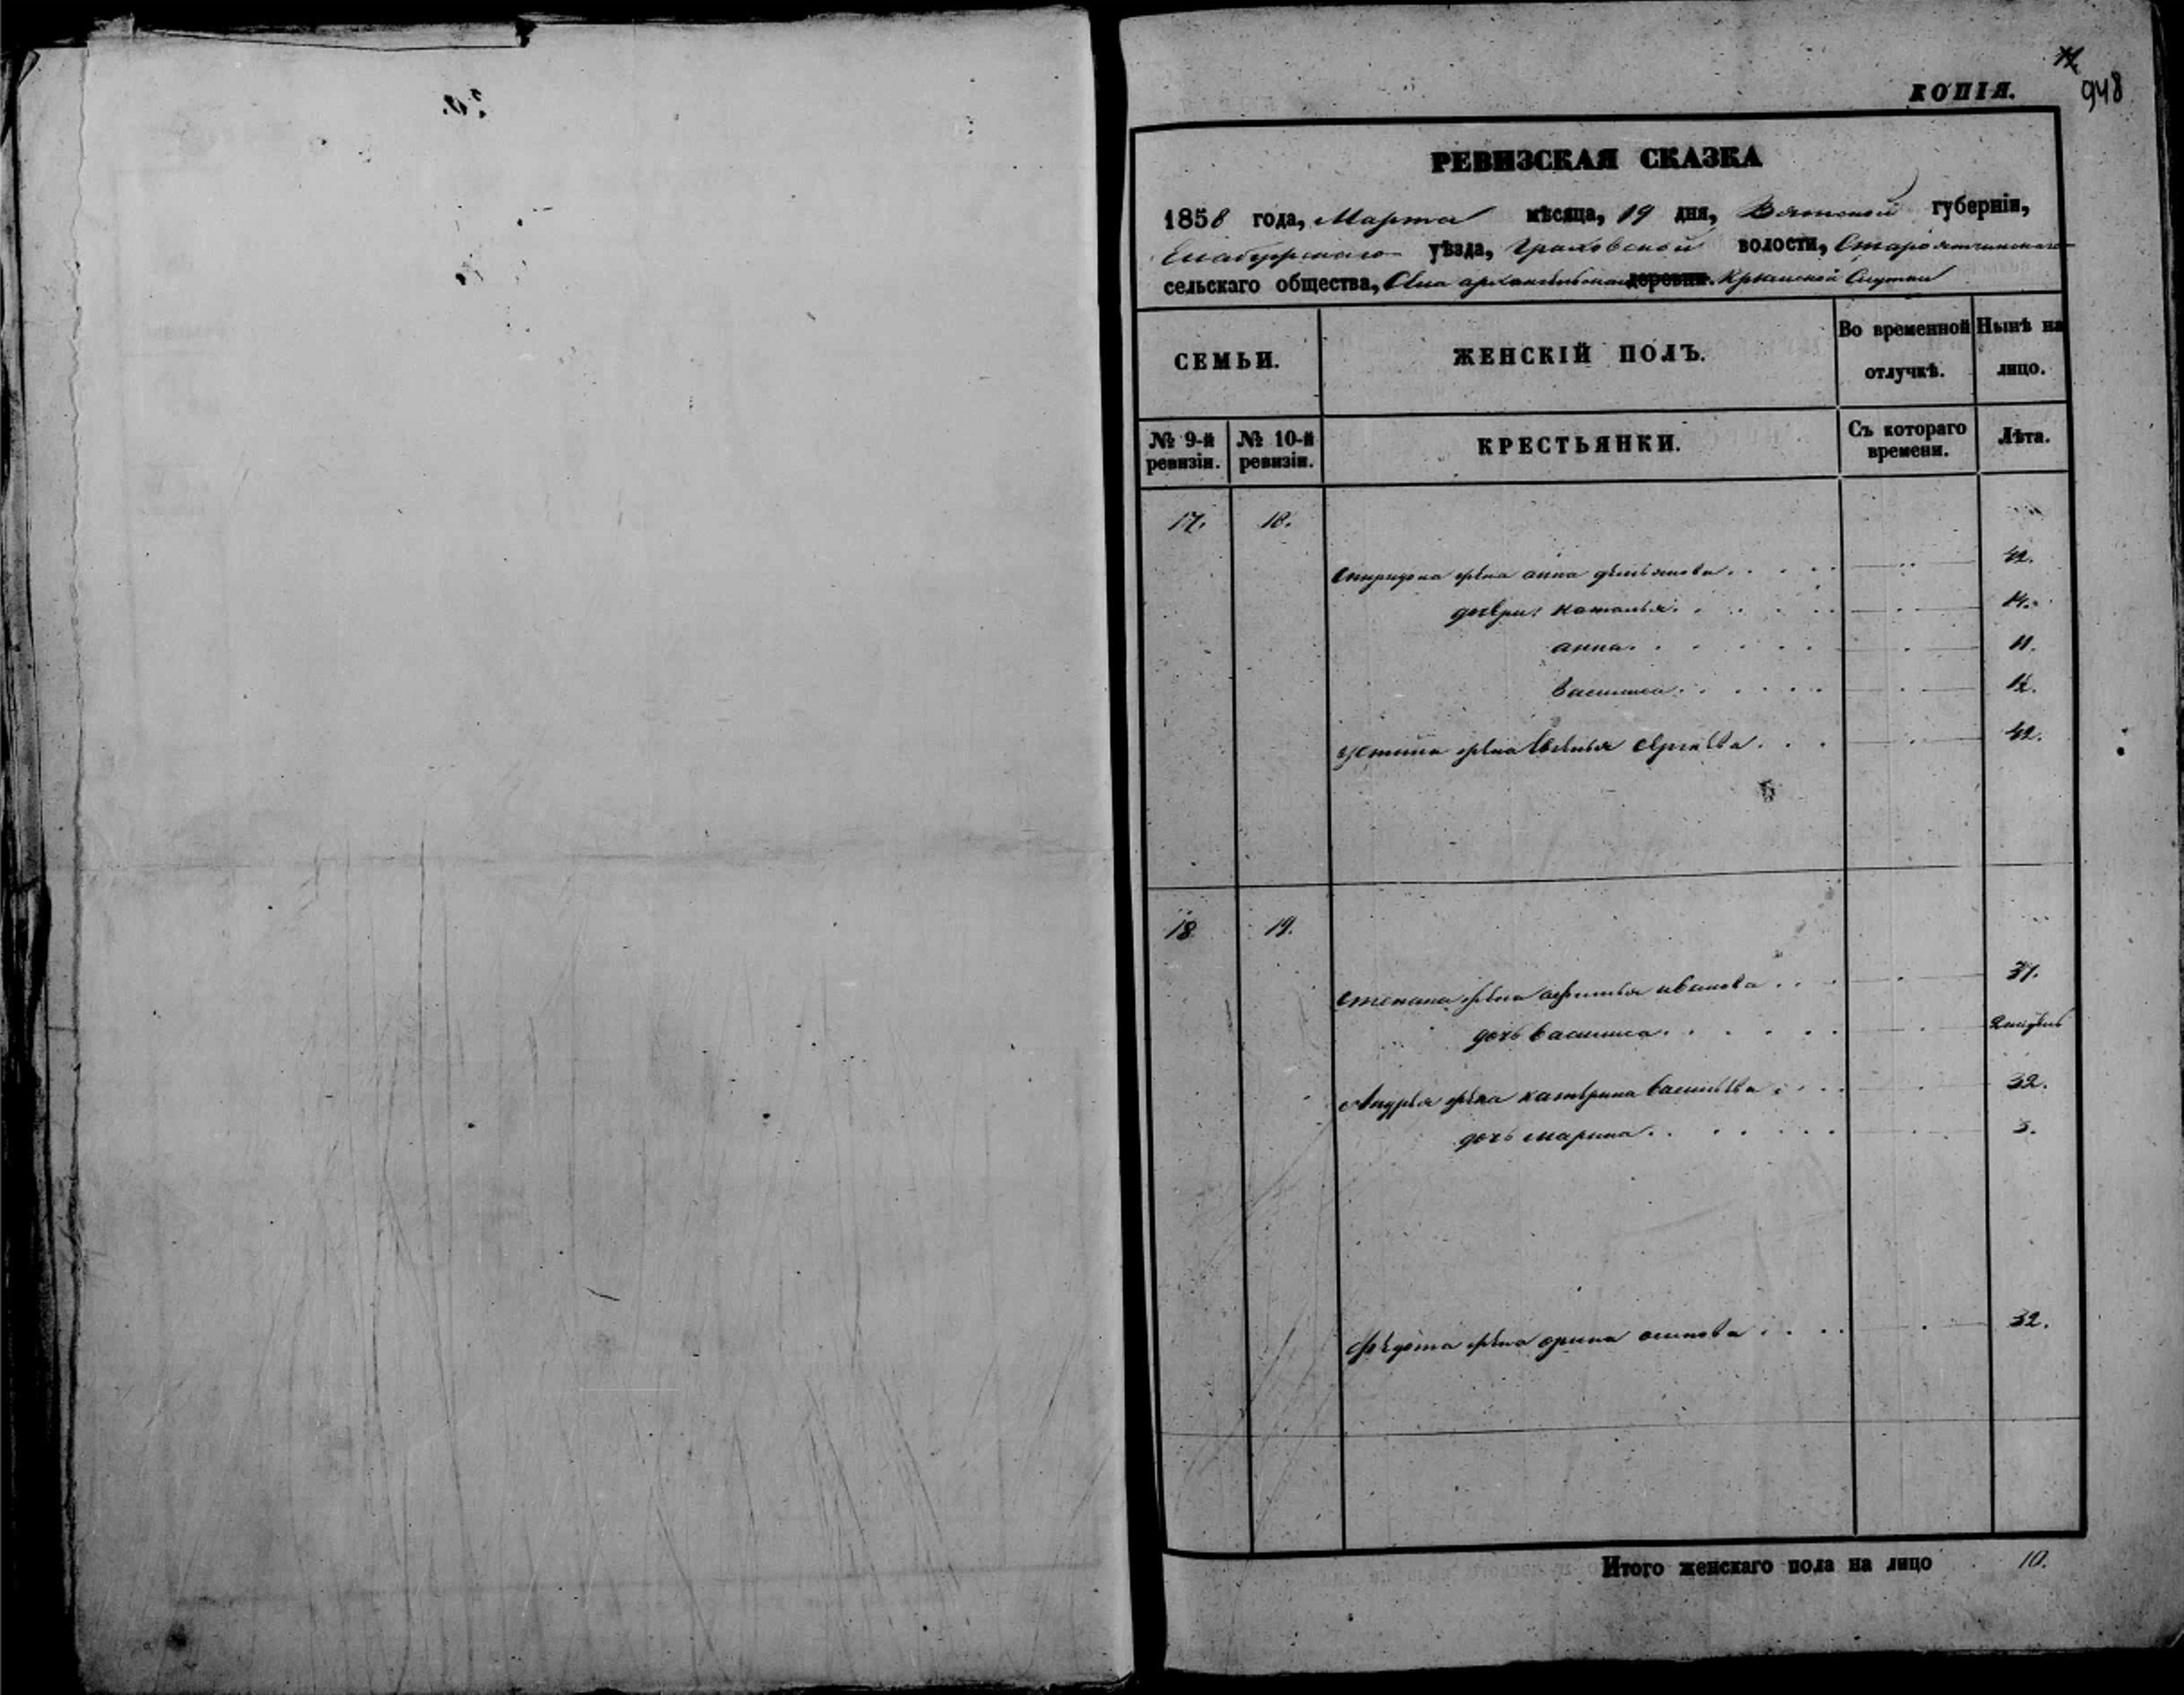 948
КОПІЯ.
РЕВИЗСКАЯ СКАЗКА
1858 года, Марта мѣсяца, 19 дня, Вятской губерніи,
Елабужскаго уѣзда, Граховской волости,
сельскаго общества, Села архангельскаго деревни. Крымской Слудки
СЕМЬИ. ЖЕНСКІЙ ПОЛЪ. Во временной отлучкѣ. Нынѣ на лицо.
№ 9-й ревизіи. № 10-й ревизіи. КРЕСТЬЯНКИ. Съ котораго времени. Лѣта.
17. 18.
Спиридона жена анна демьянова 42.
дочери: наталья 14.
анна 11.
василиса
устина жена Евгенья сергеева 42.
18 19.
степана жена афимья иванова 37.
дочь василиса
Андрея жена катерина васильева 32.
дочь марина 3.
Федота жена орина осипова 32.
Итого женскаго пола на лицо 10.